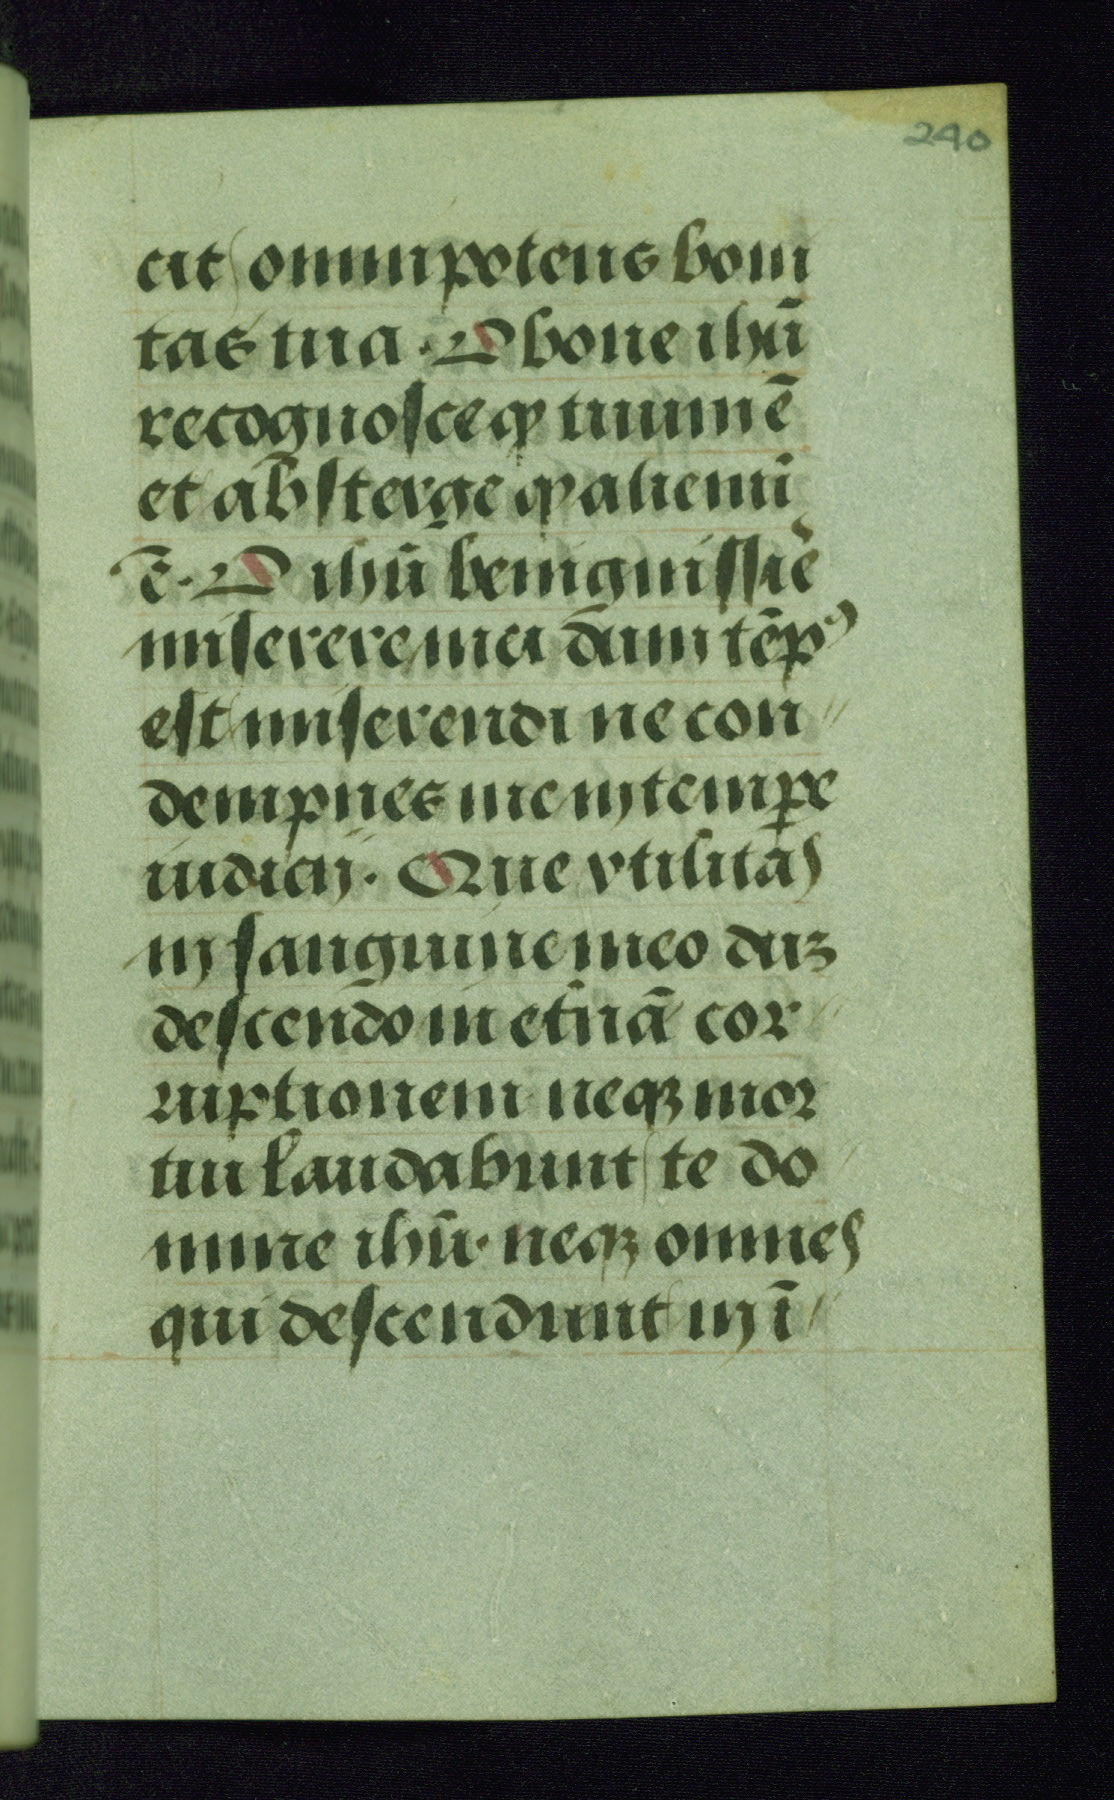 240
cit omnipotens boni
tas tua. O bone ihū
recognosce qp tuum ē
et absterge qp alienū
ē. O ihū benignissīe
miserere mei dum tēpꝰ
est miserendi ne con
dempnes me in tempe
iudicij. Que vtilitas
in sanguine meo duꝫ
descendo in etnā cor
ruptionem neqꝫ mor
tui laudabunt te do
mine ihū. neqꝫ omnes
qui descendunt in ī